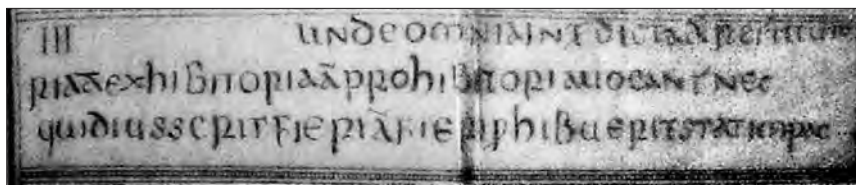 III UNDEOMNIAINTDICTAĀRESTITUTO
RIAĀEXHIBITORIAĀPROHIBITORIAUOCANTNEC
QUIDIUSSERITFIERIĀFIERIPHIBUERITSTATIMPAC